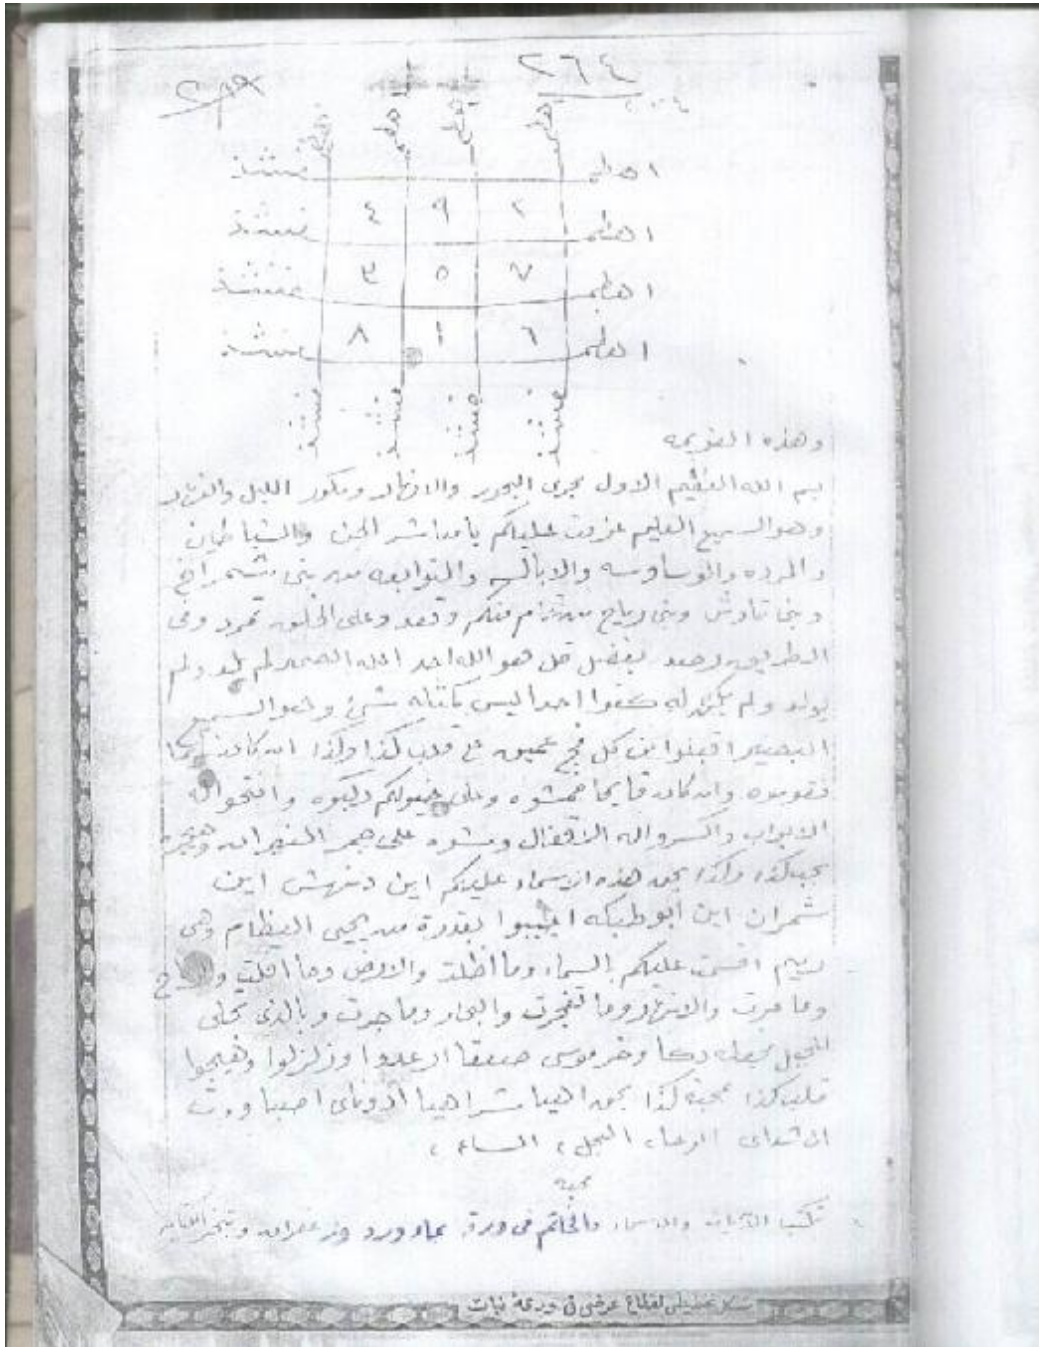 ٢٦٤
اهطم
٤ ٩ ٢
اهطم
٣ ٥ ٧
اهطم
٨ ١ ٦
اهطم
وهذه العزيمه
بسم الله العظيم الاول مجرى البحور والانهار ومكور الليل والنهار
وهو السميع العليم عزمت عليكم يامعاشر الجن والشياطين
والمرده والوساوسه والابالسه والتوابعه من بنى شمراخ
وبنى وبنى رياح من قام منكم وقعد وعلى الخلق تمرد وفى
الطريق رصد بفضل قل هو الله احد الله الصمد لم يلد ولم
يولد ولم يكن له كفوا احد ليس كمثله شىء وهو السميع
البصير اقبلوا من كل فج عميق الى قلب كذا وكذا ان كان
فقوموه وان كان قايما فمشوه وعلى خيولكم ركبوه وافتحوا له
الابواب واكسروا له الاقفال ومشوه على جمر النيران
بمحبة كذا وكذا بحق هذه الاسماء عليكم اين دنهش اين
شمران اين ابو اجيبوا بقدرة من يحيى العظام وهى
رميم اقسمت عليكم بالسماء وما اظلت والارض وما اقلت
وما مرت والانهار وما تفجرت والبحار وما جرت وبالذى تجلى
للجبل فجعله دكا وخر موسى صعقا ارعدوا وزلزلوا وهيجوا
قلب كذا بمحبة كذا بحق اهيا شراهيا ادوناى اصباوت
ال شداى الوحا، العجل، الساعه،
محبه
تكتب والاسماء والخاتم فى ورقه بماء ورد وزعفران وتبخر
شكل تخطيطى لقطاع عرضى فى ورقة نبات